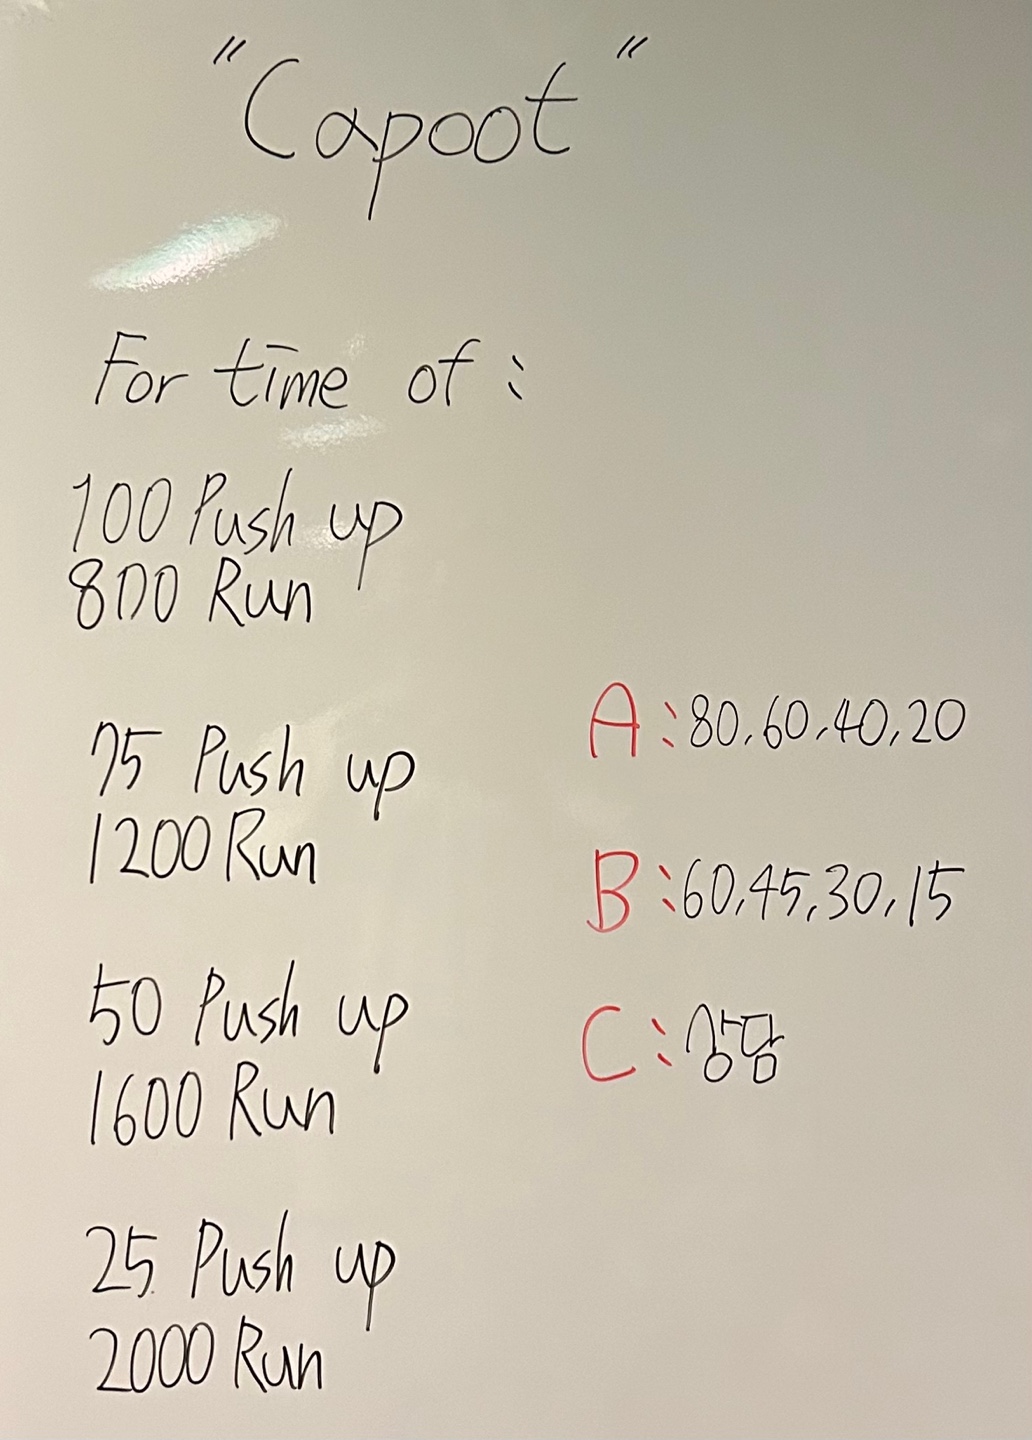 "Capoot"
For time of :
100 Push up
800 Run
75 Push up
1200 Run
50 Push up
1600 Run
25 Push up
2000 Run
A : 80, 60, 40, 20
B : 60, 45, 30, 15
C : 상담